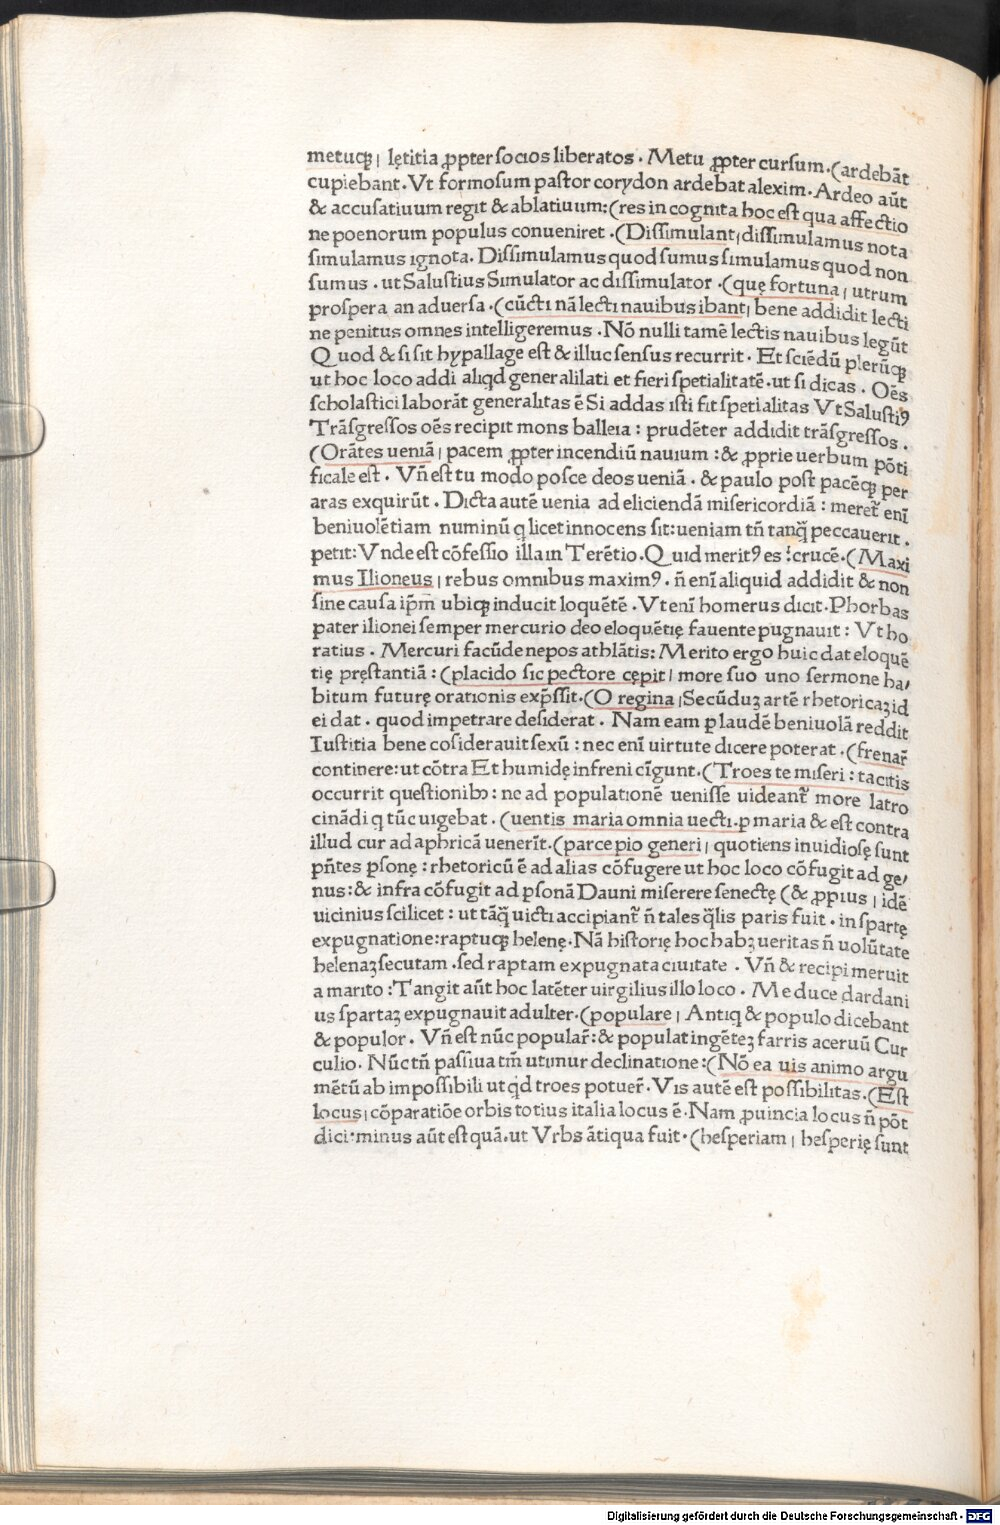 metuqꝫ | lętitia ꝓpter socios liberatos . Metu ꝓpter cursum . (ardebāt
cupiebant . Vt formosum pastor corydon ardebat alexim . Ardeo aūt
& accusatiuum regit & ablatiuum: (res in cognita hoc est qua affectio
ne poenorum populus conueniret . (Dissimulant | dissimulamus nota
simulamus ignota . Dissimulamus quod sumus simulamus quod non
sumus . ut Salustius Simulator ac dissimulator . (quę fortuna | utrum
prospera an aduersa . (cūcti nā lecti nauibus ibant | bene addidit lecti
ne penitus omnes intelligeremus . Nō nulli tamē lectis nauibus legūt
Quod & si sit hypallage est & illuc sensus recurrit . Et sciēdū plerūqꝫ
ut hoc loco addi aliqd generalilati et fieri spetialitatē . ut si dicas . Oēs
scholastici laborāt generalitas ē Si addas isti fit spetialitas Vt Salustiꝰ
Trāsgressos oēs recipit mons balleia : prudēter addidit trāsgressos .
(Orātes ueniā | pacem ꝓpter incendiū nauium : & ꝓprie uerbum pōti
ficale est . Vn̄ est tu modo posce deos ueniā . & paulo post pacēqꝫ per
aras exquirūt . Dicta autē uenia ad eliciendā misericordiā : meret᷑ enī
beniuolētiam numinū q licet innocens sit: ueniam tn̄ tanq̄ peccauerit .
petit: Vnde est cōfessio illa in Terētio . Quid meritꝰ es ? crucē . (Maxi
mus Ilioneus | rebus omnibus maximꝰ . n̄ enī aliquid addidit & non
sine causa ip̄m ubiqꝫ inducit loquētē . Vt enī homerus dicit . Phorbas
pater ilionei semper mercurio deo eloquētię fauente pugnauit : Vt ho
ratius . Mercuri facūde nepos athlātis: Merito ergo huic dat eloquē
tię pręstantiā : (placido sic pectore cępit | more suo uno sermone ha,
bitum futurę orationis exp̄ssit . (O regina | Secūduꝫ artē rhetoricaꝫ id
ei dat . quod impetrare desiderat . Nam eam ꝑ laudē beniuolā reddit
Iustitia bene cosiderauit sexū : nec enī uirtute dicere poterat . (frenar᷑
continere: ut cōtra Et humidę infreni cīgunt . (Troes te miseri : tacitis
occurrit questionibꝰ : ne ad populationē uenisse uideant᷑ more latro
cinādi q tūc uigebat . (uentis maria omnia uecti . ꝑ maria & est contra
illud cur ad aphricā uenerīt . (parce pio generi | quotiens inuidiosę sunt
pn̄tes ꝑsonę : rhetoricū ē ad alias cōfugere ut hoc loco cōfugit ad ge,
nus: & infra cōfugit ad ꝑsonā Dauni miserere senectę (& ꝓpius | idē
uicinius scilicet : ut tāq̄ uicti accipiant᷑ n̄ tales q̄lis paris fuit . in spartę
expugnatione: raptuqꝫ helenę . Nā historię hoc habꝫ ueritas n̄ uolūtate
helenaꝫ secutam . sed raptam expugnata ciuitate . Vn̄ & recipi meruit
a marito : Tangit aūt hoc latēter uirgilius illo loco . Me duce dardani
us spartaꝫ expugnauit adulter . (populare | Antiq & populo dicebant
& populor . Vn̄ est nūc popular᷑: & populat ingēteꝫ farris aceruū Cur
culio . Nūc tn̄ passiua tm̄ utimur declinatione : (Nō ea uis animo argu
mētū ab impossibili ut qd troes potuer᷑ . Vis autē est possibilitas . (Est
locus | cōparatiōe orbis totius italia locus ē . Nam ꝓuincia locus n̄ pōt
dici : minus aūt est quā . ut Vrbs ātiqua fuit . (hesperiam | hesperię sunt
Digitalisierung gefördert durch die Deutsche Forschungsgemeinschaft - DFG